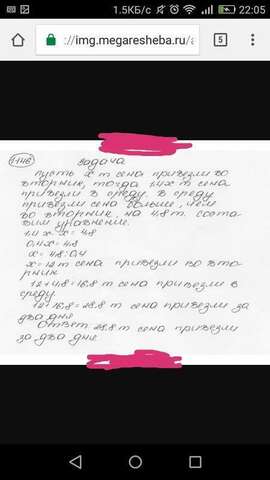 1.5КБ/с 22:05
://img.megaresheba.ru/a 5
1146 задача
пусть x т сена привезли во
вторник, тогда 1,4x т сена
привезли в среду. В среду
привезли сена больше, чем
во вторник, на 4,8 т. соста-
вим уравнение.
1,4x-x=4,8
0,4x=4,8
x=4,8:0,4
x=12 т сена привезли во вто-
рник
12+4,8=16,8 т сена привезли в
среду
12+16,8=28,8 т сена привезли за
два дня
Ответ 28,8 т сена привезли
за два дня